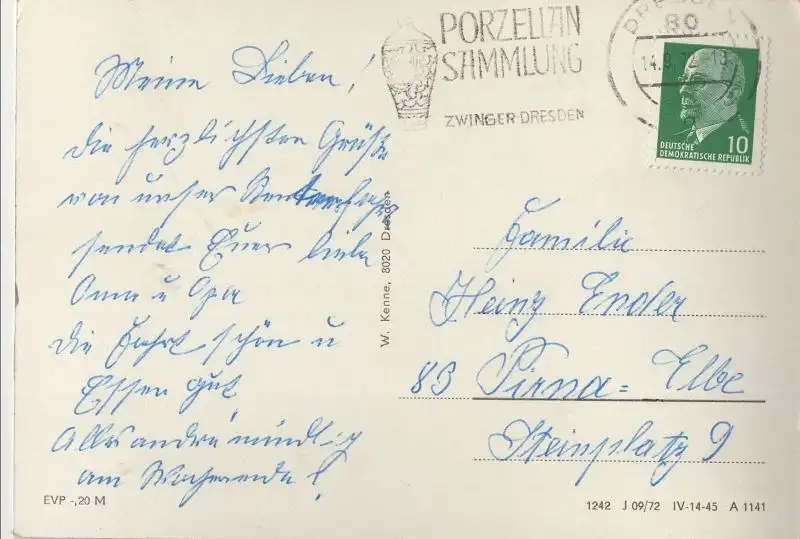 Meine Lieben!
die herzlichsten Grüße
von unser Rentnerfahrt
sendet Euer liebe
Oma u Opa
die Fahrt schön u
Essen gut,
Alles andre mündlig
am Wochenende!
EVP -,20 M
W. Kenne, 8020 Dresden
PORZELLAN
SAMMLUNG
ZWINGER DRESDEN
DRESDEN
80
10
DEUTSCHE
DEMOKRATISCHE REPUBLIK
Familie
Heinz Ender
83 Pirna = Elbe
Steinplatz 9
1242 J 09/72 IV-14-45 A 1141